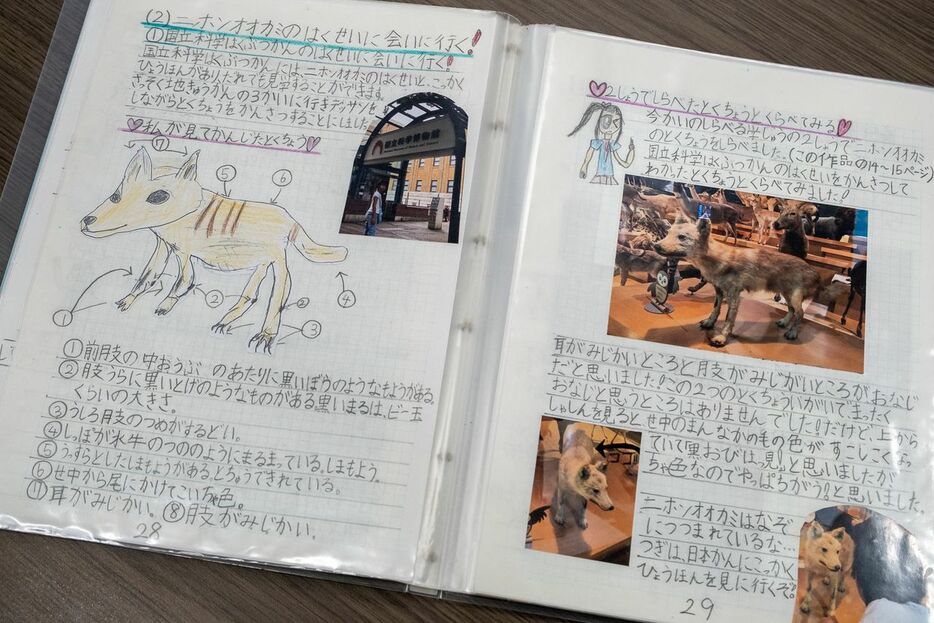 (2)ニホンオオカミのはくせいに会いに行く!
①国立科学はくぶつかんのはくせいに会いに行く!
国立科学はくぶつかんにはニホンオオカミのはくせいと、こっかく
ひょうほんがありだれでも見学することができます。
さっそく地きゅうかんの3かいに行きデッサンを
しながらとくちょうをかんさつすることにしました。
私が見てかんじたとくちょう
国立科学博物館
⑦
⑤
⑥
①
②
②
③
④
①前肢の中おうぶのあたりに黒いぼうのようなもようがある。
②肢うらに黒いとげのようなものがある黒いまるは、ビー玉
くらいの大きさ。
③うしろ肢のつめがするどい。
④しっぽが水牛のつののようにまるまっている。しまもよう。
⑤うっすらとしたしまもようがあるとちゅうできれている。
⑥せ中から尾にかけてこいちゃ色。
⑦耳がみじかい。⑧肢がみじかい。
28
2しょうでしらべたとくちょうとくらべてみる
今かいのしらべる学しゅうの2しょうでニホンオオカミ
のとくちょうをしらべました。(この作品の14~15ページ)
国立科学はくぶつかんのはくせいをかんさつして
わかったとくちょうとくらべてみました!
耳がみじかいところと肢がみじかいところがおなじ
だと思いました!この2つのとくちょういがいでまったく
おなじと思うところはありませんでした!だけど、上から
しゃしんを見るとせ中のまんなかのもの色がすこしこくなっ
ていて「黒おびは見!」と思いましたが
ちゃ色なのでやっぱちがう!と思いました。
ニホンオオカミはなぞ
につつまれているな…
つぎは、日本かんにこっかく
ひょうほんを見に行くぞ!
29